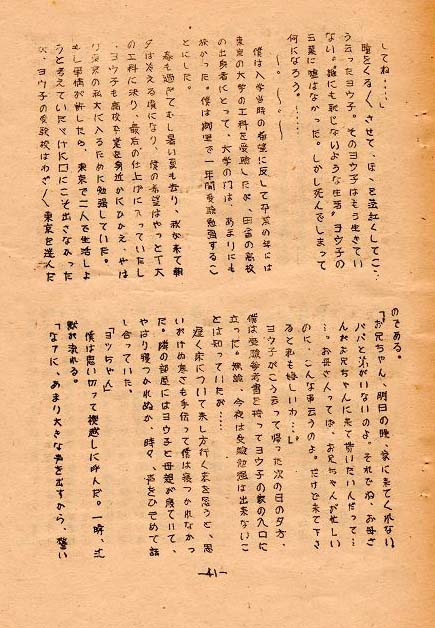 してね・・・・」
瞳をくるくさせて、ほゝを淡紅くしてこ
う云ったヨウ子。そのヨウ子はもう生きてい
ない。誰にも恥じないような生活。ヨウ子の
言葉に嘘はなかった。しかし死んでしまって
何になろう。・・・・
僕は入学当時の希望に反して卒業の年には
東京の大学の工科を受験したが、田舎の高校
の出身者にとって、大学の門は、あまりにも
狭かった。僕は郷里で一年間受験勉強するこ
とにした。
春も過ぎてむし暑い夏も去り、秋が来て朝
夕は冷える頃になり、僕の希望はやっとT大
の工科に決り、最后の仕上げに入っていたし
、ヨウ子も高校卒業を身近かにひかえ、やは
り東京の私大に入るために勉強していた。
もし事情が許したら、東京で二人で生活しよ
うと考えていた。けど口にこそ出さなかった
が、ヨウ子の受験校はわざく、東京を選んだ
のである。
「お兄ちゃん、明日の晩、家に来てくれない
パパと弟がいないのよ。それでね、お母さ
んがお兄ちゃんに来て貰いたいんだって・・・
・・・。お母さん人っては、お兄ちゃんが忙しい
のに、こんな事云うのよ。だけど来て下さ
ると私も嬉しいわ・・・」
ヨウ子がこう云って帰った次の日の夕方、
僕は受験参考書を持ってヨウ子の家の入口に
立った。無論、今夜は受験勉強は出来ないこ
とは知っていたが・・・・
遅く床について来し方行く末を思うと、思
いがけぬ寒さも手伝って僕は寝つかれなかっ
た。隣の部屋にはヨウ子と母親が寝ていて、
やはり寝つかれぬか、時々、声をひそめて話
し合っていた。
「ヨッちゃん」
僕は思い切って快感しに呼んだ。一時、沈
黙が流れる。
「なァに、あまり大きな声を出すから、驚い
—41—